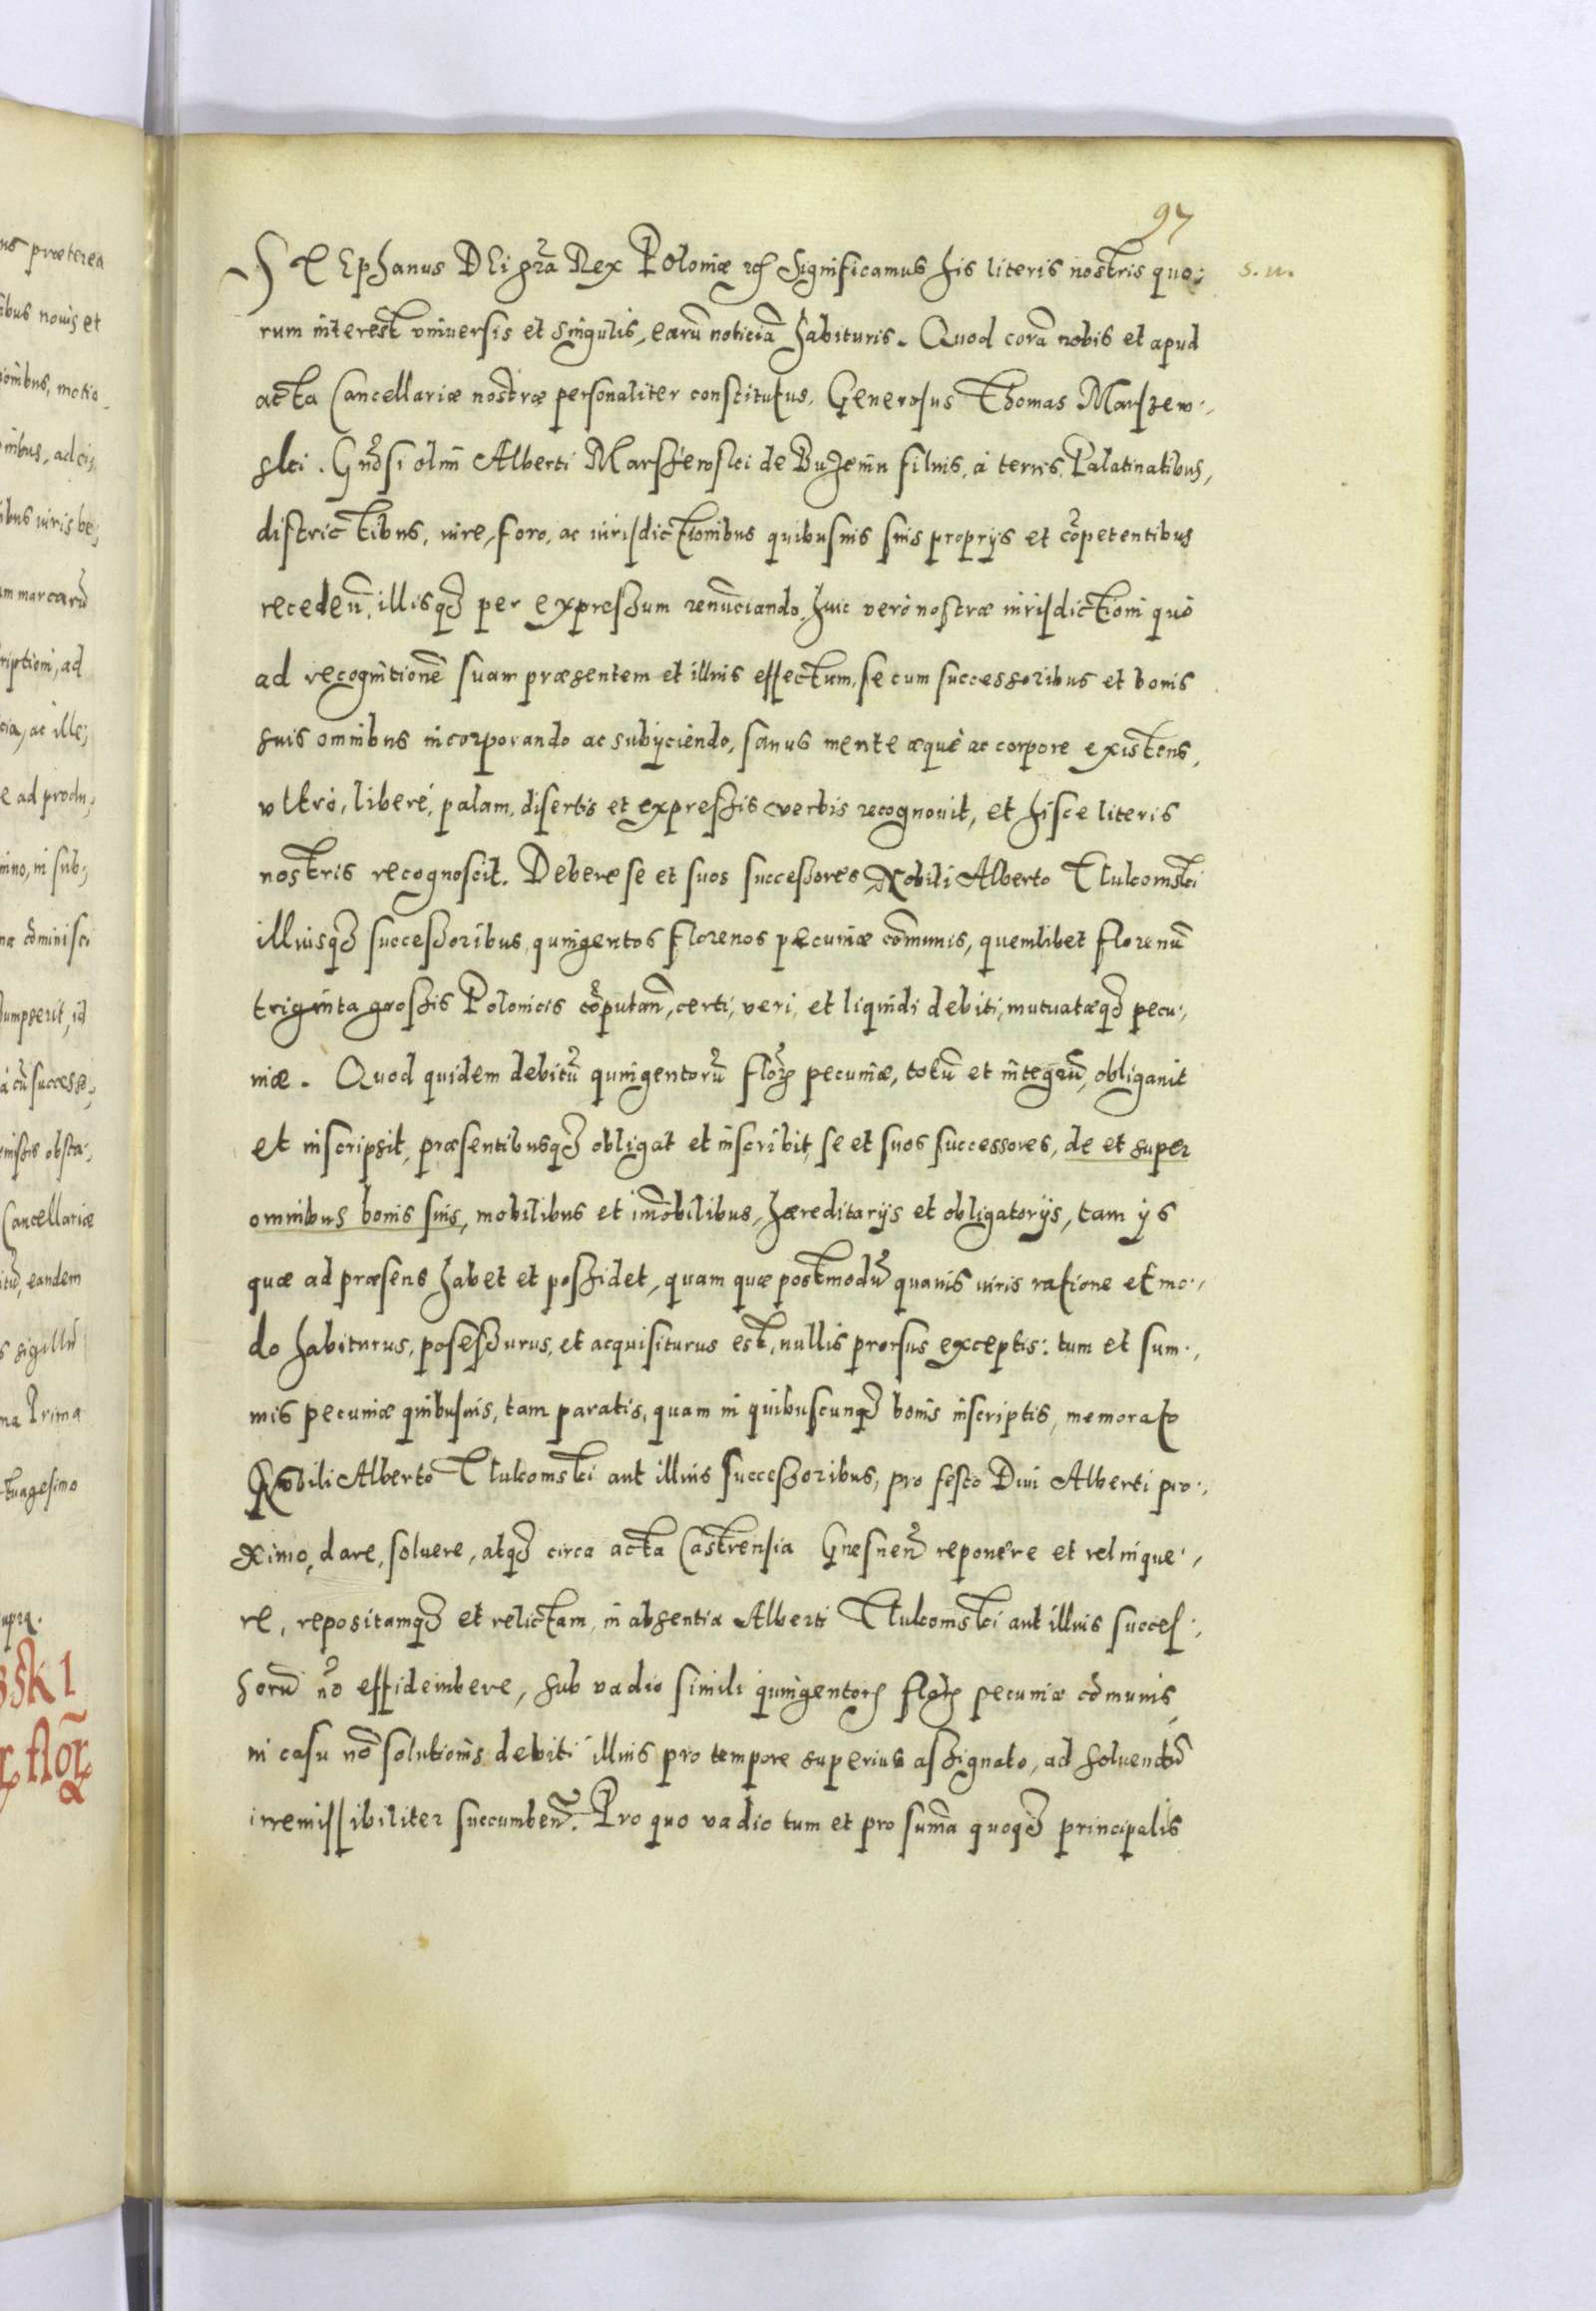 97
STEphanus DEi grã Rex Poloniæ etc Significamus his literis nostris quo:
s. n.
rum interest vniuersis et singulis, earũ noticiã habituris. Quod corã nobis et apud
acta Cancellariæ nostræ personaliter constitutus, Generosus Thomas Marszew:,
ski. Gñosi olim Alberti Marszewski de Buzenin filius, à terris, Palatinatibus,
districtibus, iure, foro, ac iurisdictionibus quibusuis suis proprijs et cõpetentibus
recedeñ, illisq3 per expressum renũciando, huic verò nostræ iurisdictioni quò
ad recognitionẽ suam præsentem et illius effectum, se cum successoribus et bonis
suis omnibus incorporando ac subijciendo, sanus mente æquè ac corpore existens,
vltrò, liberè, palam, disertis et expressis verbis recognouit, et hisce literis
nostris recognoscit. Debere se et suos successores Nobili Alberto Tlukomski
illiusq3 successoribus quingentos florenos pecuniæ cõmunis, quemlibet florenũ
triginta grossis Polonicis cõputañ, certi, veri, et liquidi debiti, mutuatæq3 pecu:,
niæ. Quod quidem debitũ quingentorũ florꝝ pecuniæ, totũ et integrũ, obligauit
et inscripsit, præsentibusq3 obligat et inscribit, se et suos successores, de et super
omnibus bonis suis, mobilibus et im̃obilibus, hæreditarijs et obligatorijs, tam ijs
quæ ad præsens habet et possidet, quam quæ postmodũ quauis iuris ratione et mo:,
do habiturus, posessurus, et acquisiturus est, nullis prorsus exceptis: tum et sum:,
mis pecuniæ quibusuis, tam paratis, quam in quibuscunq3 bonis inscriptis, memorato
Nobili Alberto Tlukomski aut illius successoribus, pro festo Diui Alberti pro:,
ximo, dare, soluere, atq3 circa acta Castrensia Gnesneñ reponere et relinque:,
re, repositamq3 et relictam, in absentia Alberti Tlukomski aut illius succes:,
sorũ nõ effideiubere, sub vadio simili quingentorꝝ florꝝ pecuniæ cõmunis,
in casu nõ solutionis debiti illius pro tempore superius assignato, ad soluendũ
irremissibiliter succumbeñ. Pro quo vadio tum et pro sum̃a quoq3 principalis